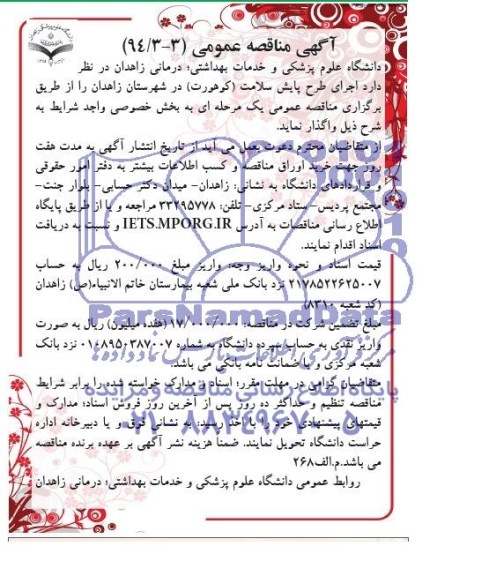 آگهی مناقصه عمومی (۳-۹۴/۳)
دانشگاه علوم پزشکی و خدمات بهداشتی؛ درمانی زاهدان در نظر
دارد اجرای طرح پایش سلامت (کوهورت) در شهرستان زاهدان را از طریق
برگزاری مناقصه عمومی یک مرحله ای به بخش خصوصی واجد شرایط به
شرح ذیل واگذار نماید.
از متقاضیان محترم دعوت بعمل می آید از تاریخ انتشار آگهی به مدت هفت
روز جهت خرید اوراق مناقصه و کسب اطلاعات بیشتر به دفتر امور حقوقی
و قراردادهای دانشگاه به نشانی: زاهدان- میدان دکتر حسابی- بلوار جنت-
مجتمع پردیس- ستاد مرکزی- تلفن: ۳۳۲۹۵۷۷۸ مراجعه و یا از طریق پایگاه
اطلاع رسانی مناقصات به آدرس IETS.MPORG.IR و نسبت به دریافت
اسناد اقدام نمایند.
قیمت اسناد و نحوه واریز وجه: واریز مبلغ ۲۰۰/۰۰۰ ریال به حساب
۲۱۷۸۵۲۲۶۲۵۰۰۷ نزد بانک ملی شعبه بیمارستان خاتم الانبیاء(ص) زاهدان
(کد شعبه ۸۳۱۰)
مبلغ تضمین شرکت در مناقصه: ۱۷/۰۰۰/۰۰۰ (هفده میلیون) ریال به صورت
واریز نقدی به حساب سپرده دانشگاه به شماره ۰۱۰۸۹۵۰۳۸۷۰۰۷ نزد بانک
شعبه مرکزی و یا ضمانت نامه بانکی می باشد.
متقاضیان گرامی در مهلت مقرر؛ اسناد و مدارک خواسته شده را برابر شرایط
مناقصه تنظیم و حداکثر ده روز پس از آخرین روز فروش اسناد؛ مدارک و
قیمتهای پیشنهادی خود را با اخذ رسید؛ به نشانی فوق و یا دبیرخانه اداره
حراست دانشگاه تحویل نمایند. ضمناً هزینه نشر آگهی بر عهده برنده مناقصه
می باشد.م.الف۲۶۸
روابط عمومی دانشگاه علوم پزشکی و خدمات بهداشتی؛ درمانی زاهدان
ParsNamadData
پایگاه اطلاع رسانی مناقصه و مزایده
۰۲۱-۸۸۳۴۹۶۷۰-۵